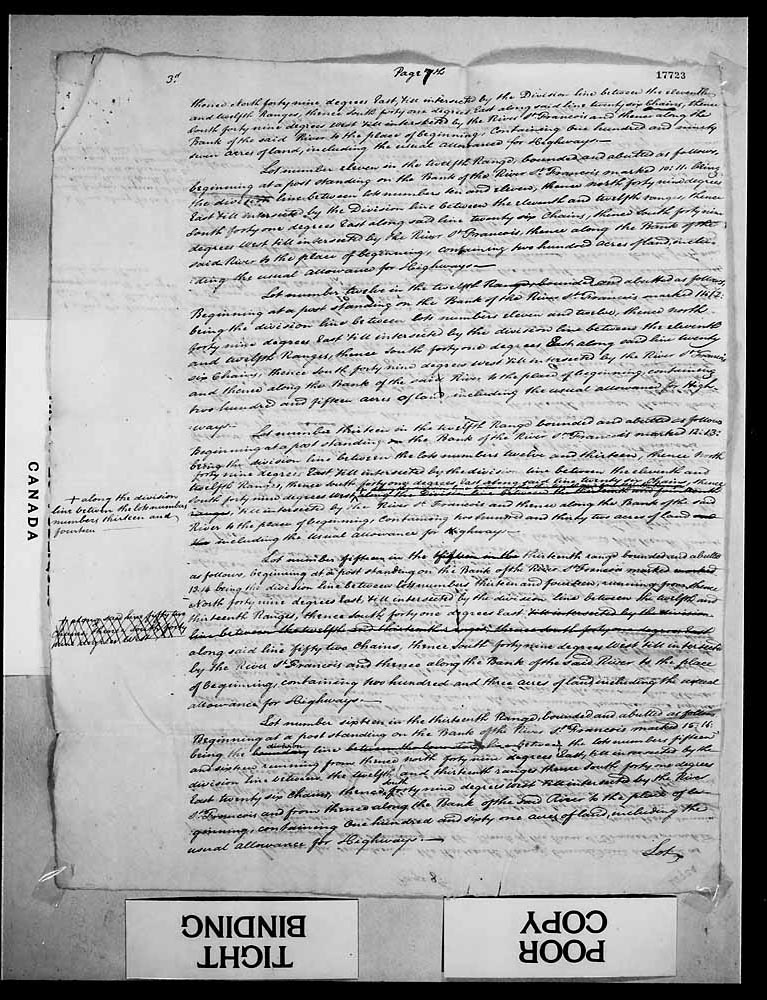 3.d Page 7th 17723
thence North forty nine degrees East, till intersected by the Division line between the eleventh
and twelfth Ranges, thence South forty one degrees East along said line twenty six Chains, thence
South forty nine degrees West till intersected by the River St Francois and thence along the
Bank of the said River to the place of beginning, Containing One hundred and ninety
seven acres of land, including the usual allowance for Highways.
Lot number eleven in the twelfth Range, bounded and abutted as follows,
beginning at a post standing on the Bank of the River St Francois marked 10:11: being
the division line between lots numbers ten and eleven, thence north forty nine degrees
East till intersected by the Division line between the eleventh and twelfth ranges, thence
South forty one degrees East along said line twenty six Chains, thence South forty nine
degrees West till intersected by the River St Francois, thence along the Bank of the
said River to the place of beginning, containing two hundred acres of land, inclu
ding the usual allowance for Highways.
Lot number twelve in the twelfth Range, bounded and abutted as follows,
Beginning at a post standing on the Bank of the River St Francois marked 11:12:
being the division line between lots numbers eleven and twelve, thence north
forty nine degrees East till intersected by the division line between the eleventh
and twelfth Ranges, thence South forty one degrees East along said line twenty
six Chains, thence South forty nine degrees West till intersected by the River St Francois
and thence along the Bank of the said River to the place of beginning, containing
two hundred and fifteen acres of land including the usual allowance for High
ways.
Lot number thirteen in the twelfth Range bounded and abutted as follows
Beginning at a post standing on the Bank of the River St Francois marked 12:13:
being the division line between the lots numbers twelve and thirteen, thence North
forty nine degrees East till intersected by the division line between the eleventh and
twelfth Ranges, thence South forty one degrees East along said line twenty six Chains, thence
South forty nine degrees West along the Division line between the thirteenth and fourteenth
till intersected by the River St Francois and thence along the Bank of the said
River to the place of beginning, Containing two hundred and thirty two acres of land
including the usual allowance for Highways.
+ along the division
line between the lots numbers
numbers thirteen and
fourteen
Lot number fifteen in the thirteenth range bounded and abutted
as follows, beginning at a post standing on the Bank of the River St Francois marked
13:14 being the division line between lots numbers thirteen and fourteen, running from thence
North forty nine degrees East, till intersected by the division line between the twelfth and
thirteenth Ranges, thence South forty one degrees East, till intersected by the division
line between the twelfth and thirteenth ranges, thence South forty one degrees East
along said line fifty two Chains, thence South forty nine degrees West till intersected
by the River St Francois and thence along the Bank of the said River to the place
of beginning, containing two hundred and three acres of land, including the usual
allowance for Highways.
Lot number sixteen in the thirteenth Range, bounded and abutted as follows
Beginning at a post standing on the Bank of the River St Francois marked 15:16:
being the boundary division line between the lots numbers fifteen
and sixteen running from thence north forty nine degrees East, till intersected by the
division line between the twelfth and thirteenth ranges thence South forty one degrees
East twenty six Chains, thence South forty nine degrees West till intersected by the River
St Francois and from thence along the Bank of the said River to the place of be
ginning, containing One hundred and sixty one acres of land, including the
usual allowance for Highways.
Lot
CANADA
TIGHT
BINDING
POOR
COPY